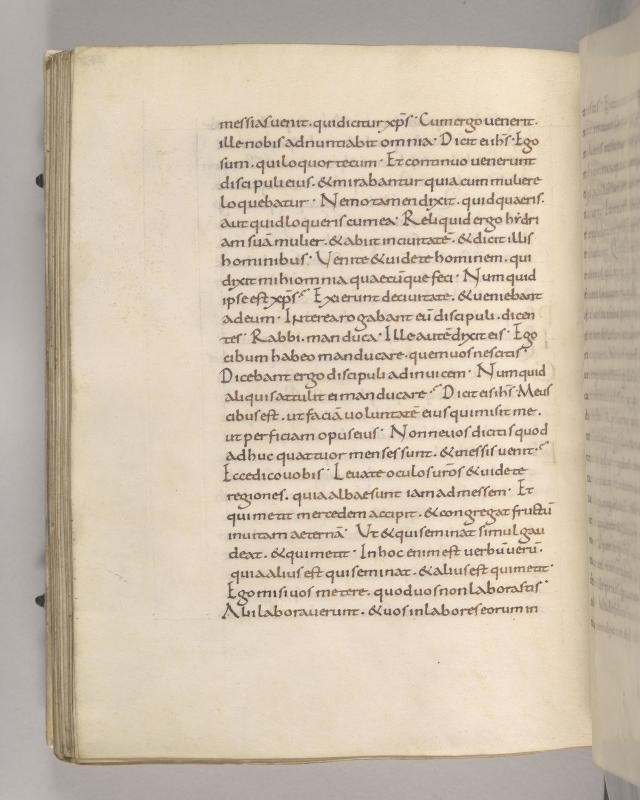 messias uenit. qui dicitur xp̄s. Cum ergo uenerit.
ille nobis adnuntiabit omnia. Dicit ei ih̄s. Ego
sum. qui loquor tecum. Et continuo uenerunt
discipuli eius. & mirabantur quia cum muliere
loquebatur. Nemo tamen dixit. quid quaeris.
aut quid loqueris cum ea. Reliquid ergo hydri
am suā mulier. & abiit in ciuitatē. & dicit illis
hominibus. Venite & uidete hominem. qui
dixit mihi omnia quaecūque feci. Numquid
ipse est xp̄s. Exierunt de ciuitate. & ueniebant
ad eum. Interea rogabant eū discipuli. dicen
tes. Rabbi. manduca. Ille autē dixit eis. Ego
cibum habeo manducare. quem uos nescitis.
Dicebant ergo discipuli ad inuicem. Numquid
aliquis attulit ei manducare. Dicit eis ih̄s. Meus
cibus est. ut faciā uoluntatē eius qui misit me.
ut perficiam opus eius. Nonne uos dicitis quod
adhuc quattuor menses sunt. & messis uenit.
Ecce dico uobis. Leuate oculos ur̄os & uidete
regiones. quia albae sunt iam ad messem. Et
qui metit mercedem accipit. & congregat fructū
in uitam aeternā. Ut & qui seminat simul gau
deat. & qui metit. In hoc enim est uerbū uerū.
quia alius est qui seminat. & alius est qui metit.
Ego misi uos metere. quod uos non laborastis.
Alii laborauerunt. & uos in labores eorum in